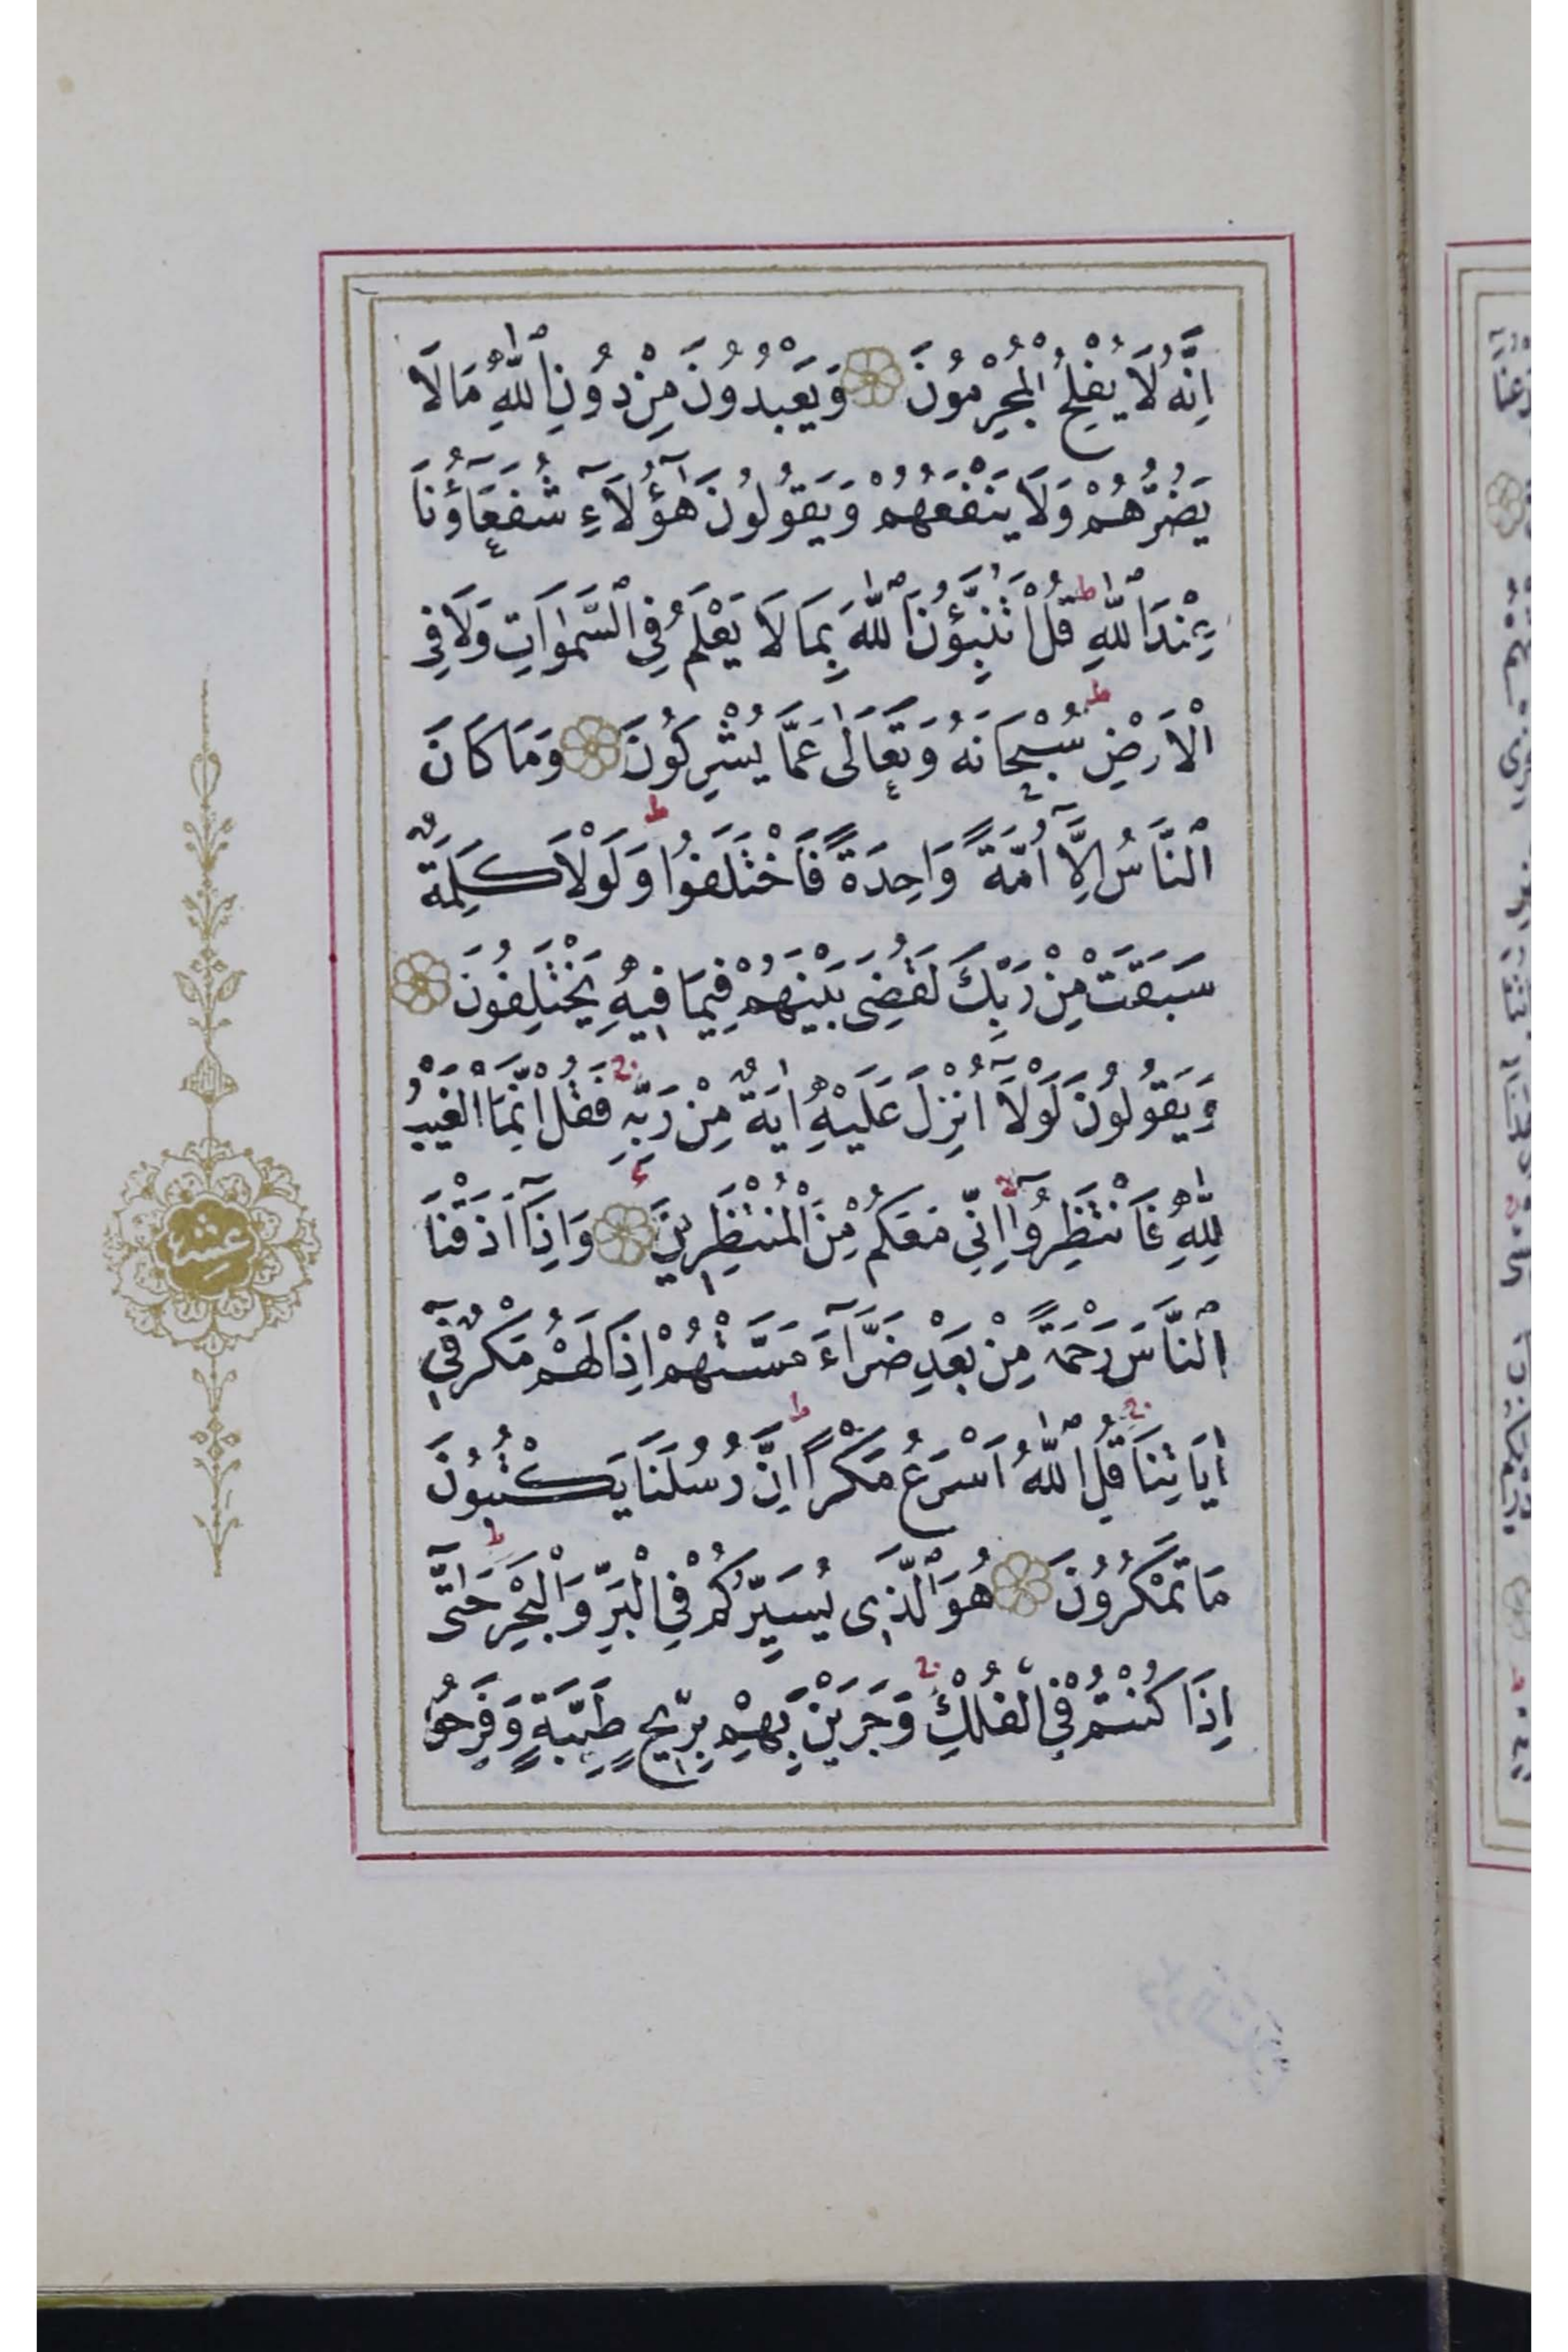 اِنَّهُ لَا يُفْلِحُ الْمُجْرِمُونَ وَيَعْبُدُونَ مِنْ دُونِ اللّٰهِ مَا لَا
يَضُرُّهُمْ وَلَا يَنْفَعُهُمْ وَيَقُولُونَ هٰٓؤُ۬لَٓاءِ شُفَعَٓاؤُ۬نَا
عِنْدَ اللّٰهِ ط قُلْ اَتُنَبِّؤُ۫نَ اللّٰهَ بِمَا لَا يَعْلَمُ فِي السَّمٰوَاتِ وَلَا فِي
الْاَرْضِ ط سُبْحَانَهُ وَتَعَالٰى عَمَّا يُشْرِكُونَ وَمَا كَانَ
النَّاسُ اِلَّٓا اُمَّةً وَاحِدَةً فَاخْتَلَفُوا ط وَلَوْلَا كَلِمَةٌ
سَبَقَتْ مِنْ رَبِّكَ لَقُضِيَ بَيْنَهُمْ فِيمَا فِيهِ يَخْتَلِفُونَ
وَيَقُولُونَ لَوْلَٓا اُنْزِلَ عَلَيْهِ اٰيَةٌ مِنْ رَبِّهِ ج فَقُلْ اِنَّمَا الْغَيْبُ
لِلّٰهِ فَانْتَظِرُوا اِنِّي مَعَكُمْ مِنَ الْمُنْتَظِرِينَ ع وَاِذَٓا اَذَقْنَا
النَّاسَ رَحْمَةً مِنْ بَعْدِ ضَرَّٓاءَ مَسَّتْهُمْ اِذَا لَهُمْ مَكْرٌ فِٓي
اٰيَاتِنَا ج قُلِ اللّٰهُ اَسْرَعُ مَكْرًا ط اِنَّ رُسُلَنَا يَكْتُبُونَ
مَا تَمْكُرُونَ هُوَ الَّذِي يُسَيِّرُكُمْ فِي الْبَرِّ وَالْبَحْرِ ط حَتّٰٓى
اِذَا كُنْتُمْ فِي الْفُلْكِ ج وَجَرَيْنَ بِهِمْ بِرِيحٍ طَيِّبَةٍ وَفَرِحُوا